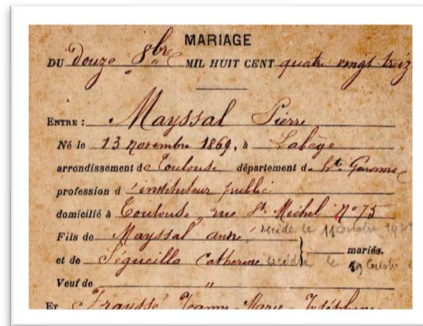 MARIAGE
DU Douze 8bre MIL HUIT CENT quatre vingt treiz
ENTRE : Mayssal Pierre
Né le 13 novembre 1869, à Labège
arrondissement de Toulouse département de Hte Garonne
profession d'instituteur public
domicilié à Toulouse, rue St Michel N° 75
Fils de Mayssal décédé le 11 octobre
et de Ségueilla Catherine décédée le mariés.
Veuf de "
ET Jeanne Marie